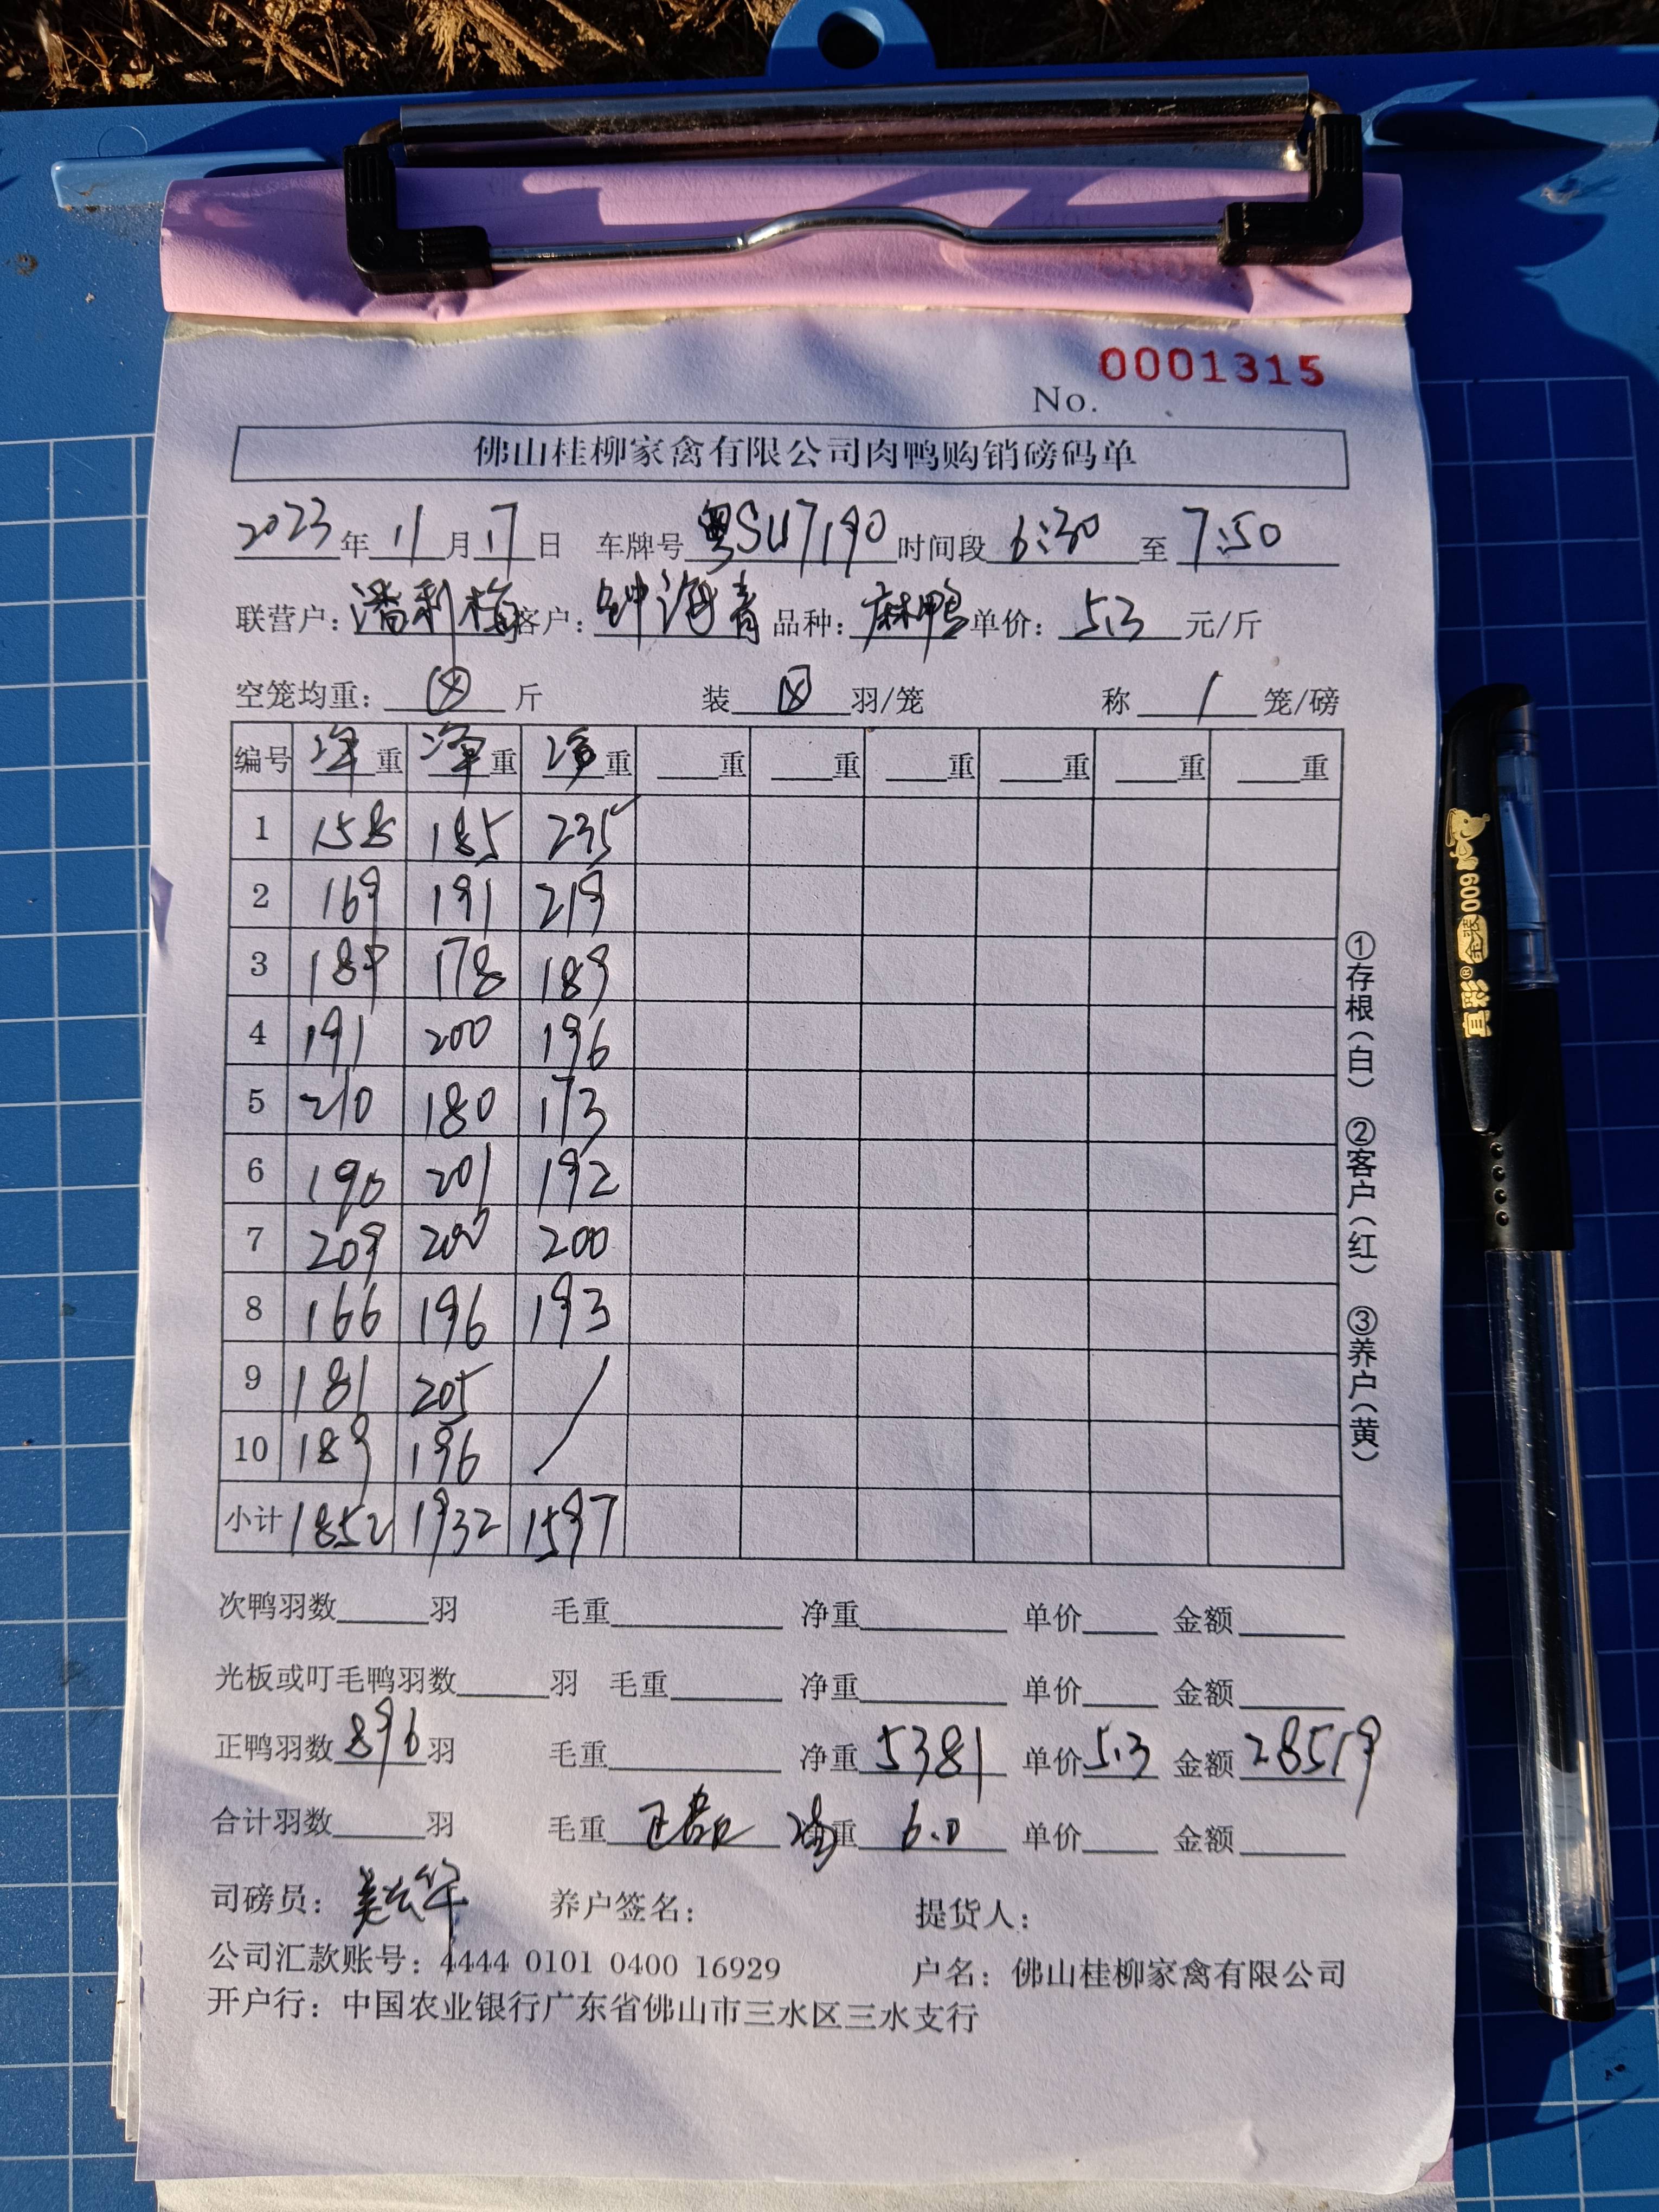 0001315
No.
佛山桂柳家禽有限公司肉鸭购销磅码单
2023年11月17日 车牌号粤SU7190 时间段6:30至7:50
联营户：潘利梅 客户：钟海青 品种：麻鸭 单价：5.3元/斤
空笼均重： 斤 装 羽/笼 称 1 笼/磅
编号 净重 净重 净重 重 重 重 重 重 重
1 158 185 235
2 169 191 219
3 189 178 189
4 191 200 196
5 210 180 173
6 190 201 192
7 209 200 200
8 166 196 193
9 181 205 /
10 189 196
小计 1852 1932 1597
次鸭羽数 羽 毛重 净重 单价 金额
光板或叮毛鸭羽数 羽 毛重 净重 单价 金额
正鸭羽数896羽 毛重 净重5381 单价5.3 金额28519
合计羽数 羽 毛重 净重 6.0 单价 金额
司磅员： 养户签名： 提货人：
公司汇款账号：4444 0101 0400 16929 户名：佛山桂柳家禽有限公司
开户行：中国农业银行广东省佛山市三水区三水支行
①存根（白） ②客户（红） ③养户（黄）
真彩® 金装009